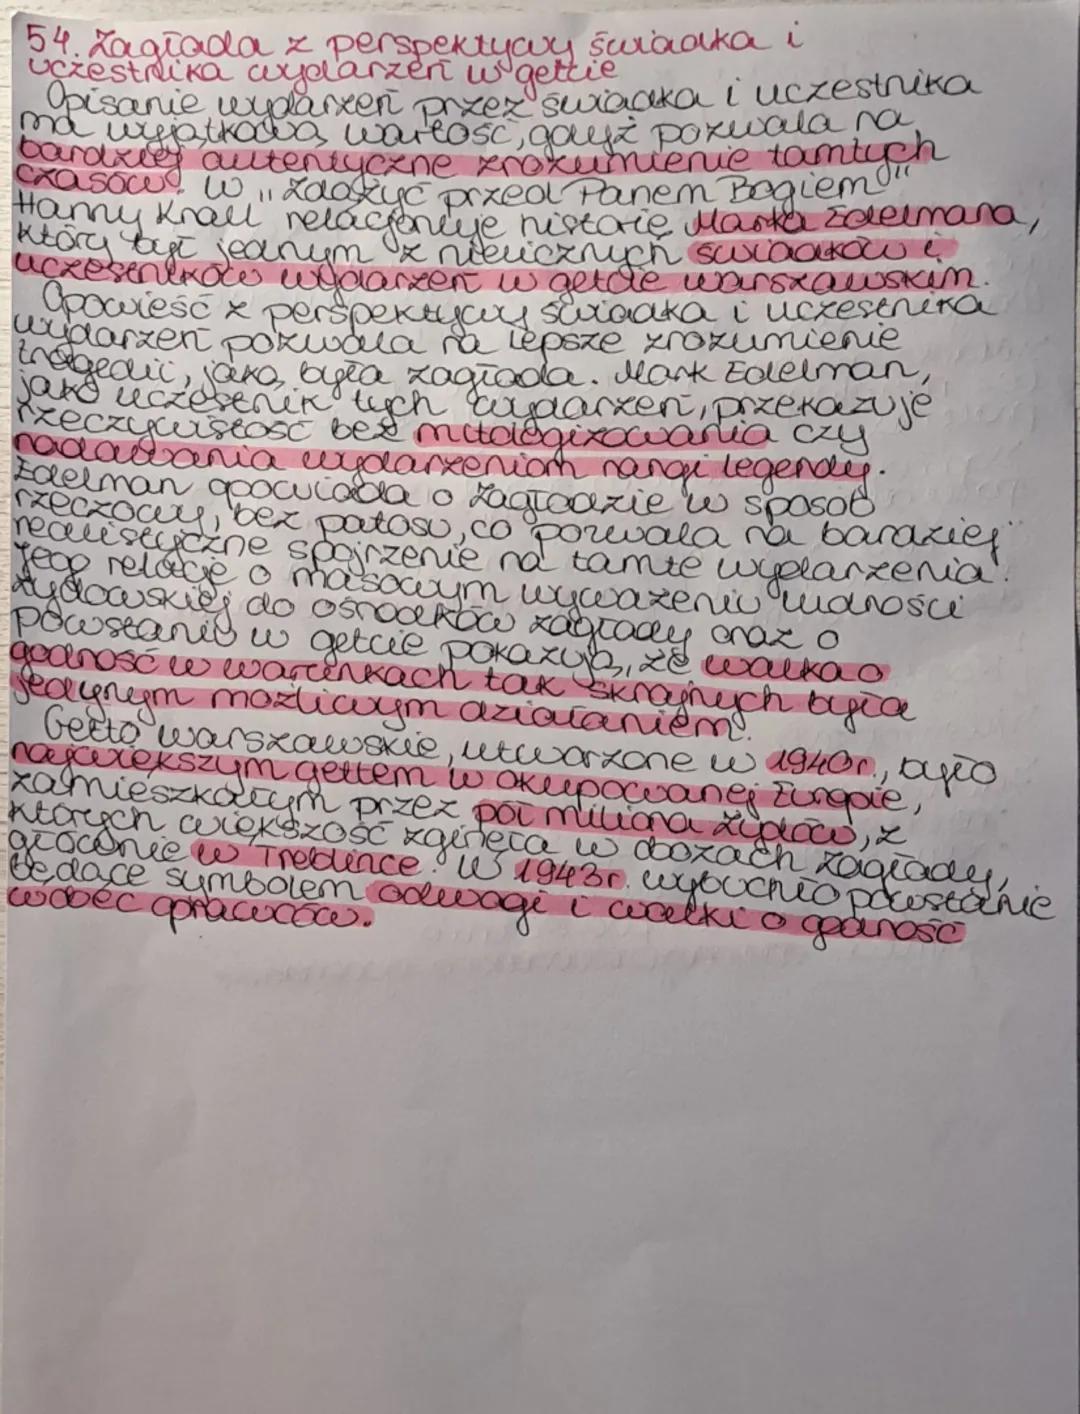 54. Zagłada z perspektywy świadka i
uczestnika wydarzeń w getcie
Opisanie wydarzeń przez świadka i uczestnika
ma wyjątkową wartość, gdyż pozwala na
bardziej autentyczne zrozumienie tamtych
czasów. W "Zdążyć przed Panem Bogiem"
Hanny Krall relacjonuje historię Marka Edelmana,
który był jednym z nielicznych świadków i
uczestników wydarzeń w getcie warszawskim.
Opowieść z perspektywy świadka i uczestnika
wydarzeń pozwala na lepsze zrozumienie
tragedii, jaką była zagłada. Mark Edelman,
jako uczestnik tych wydarzeń, przekazuje
rzeczywistość bez mitologizowania czy
nadawania wydarzeniom rangi legendy.
Edelman opowiada o zagładzie w sposób
rzeczowy, bez patosu, co pozwala na bardziej
realistyczne spojrzenie na tamte wydarzenia.
Jego relacje o masowym wywożeniu ludności
żydowskiej do ośrodków zagłady oraz o
powstaniu w getcie pokazują, że walka o
godność w warunkach tak skrajnych była
jedynym możliwym działaniem.
Getto warszawskie, utworzone w 1940r., było
największym gettem w okupowanej Europie,
zamieszkałym przez pół miliona Żydów, z
których większość zginęła w obozach zagłady,
głównie w Treblince. W 1943r. wybuchło powstanie
będące symbolem odwagi i walki o godność
wobec oprawców.